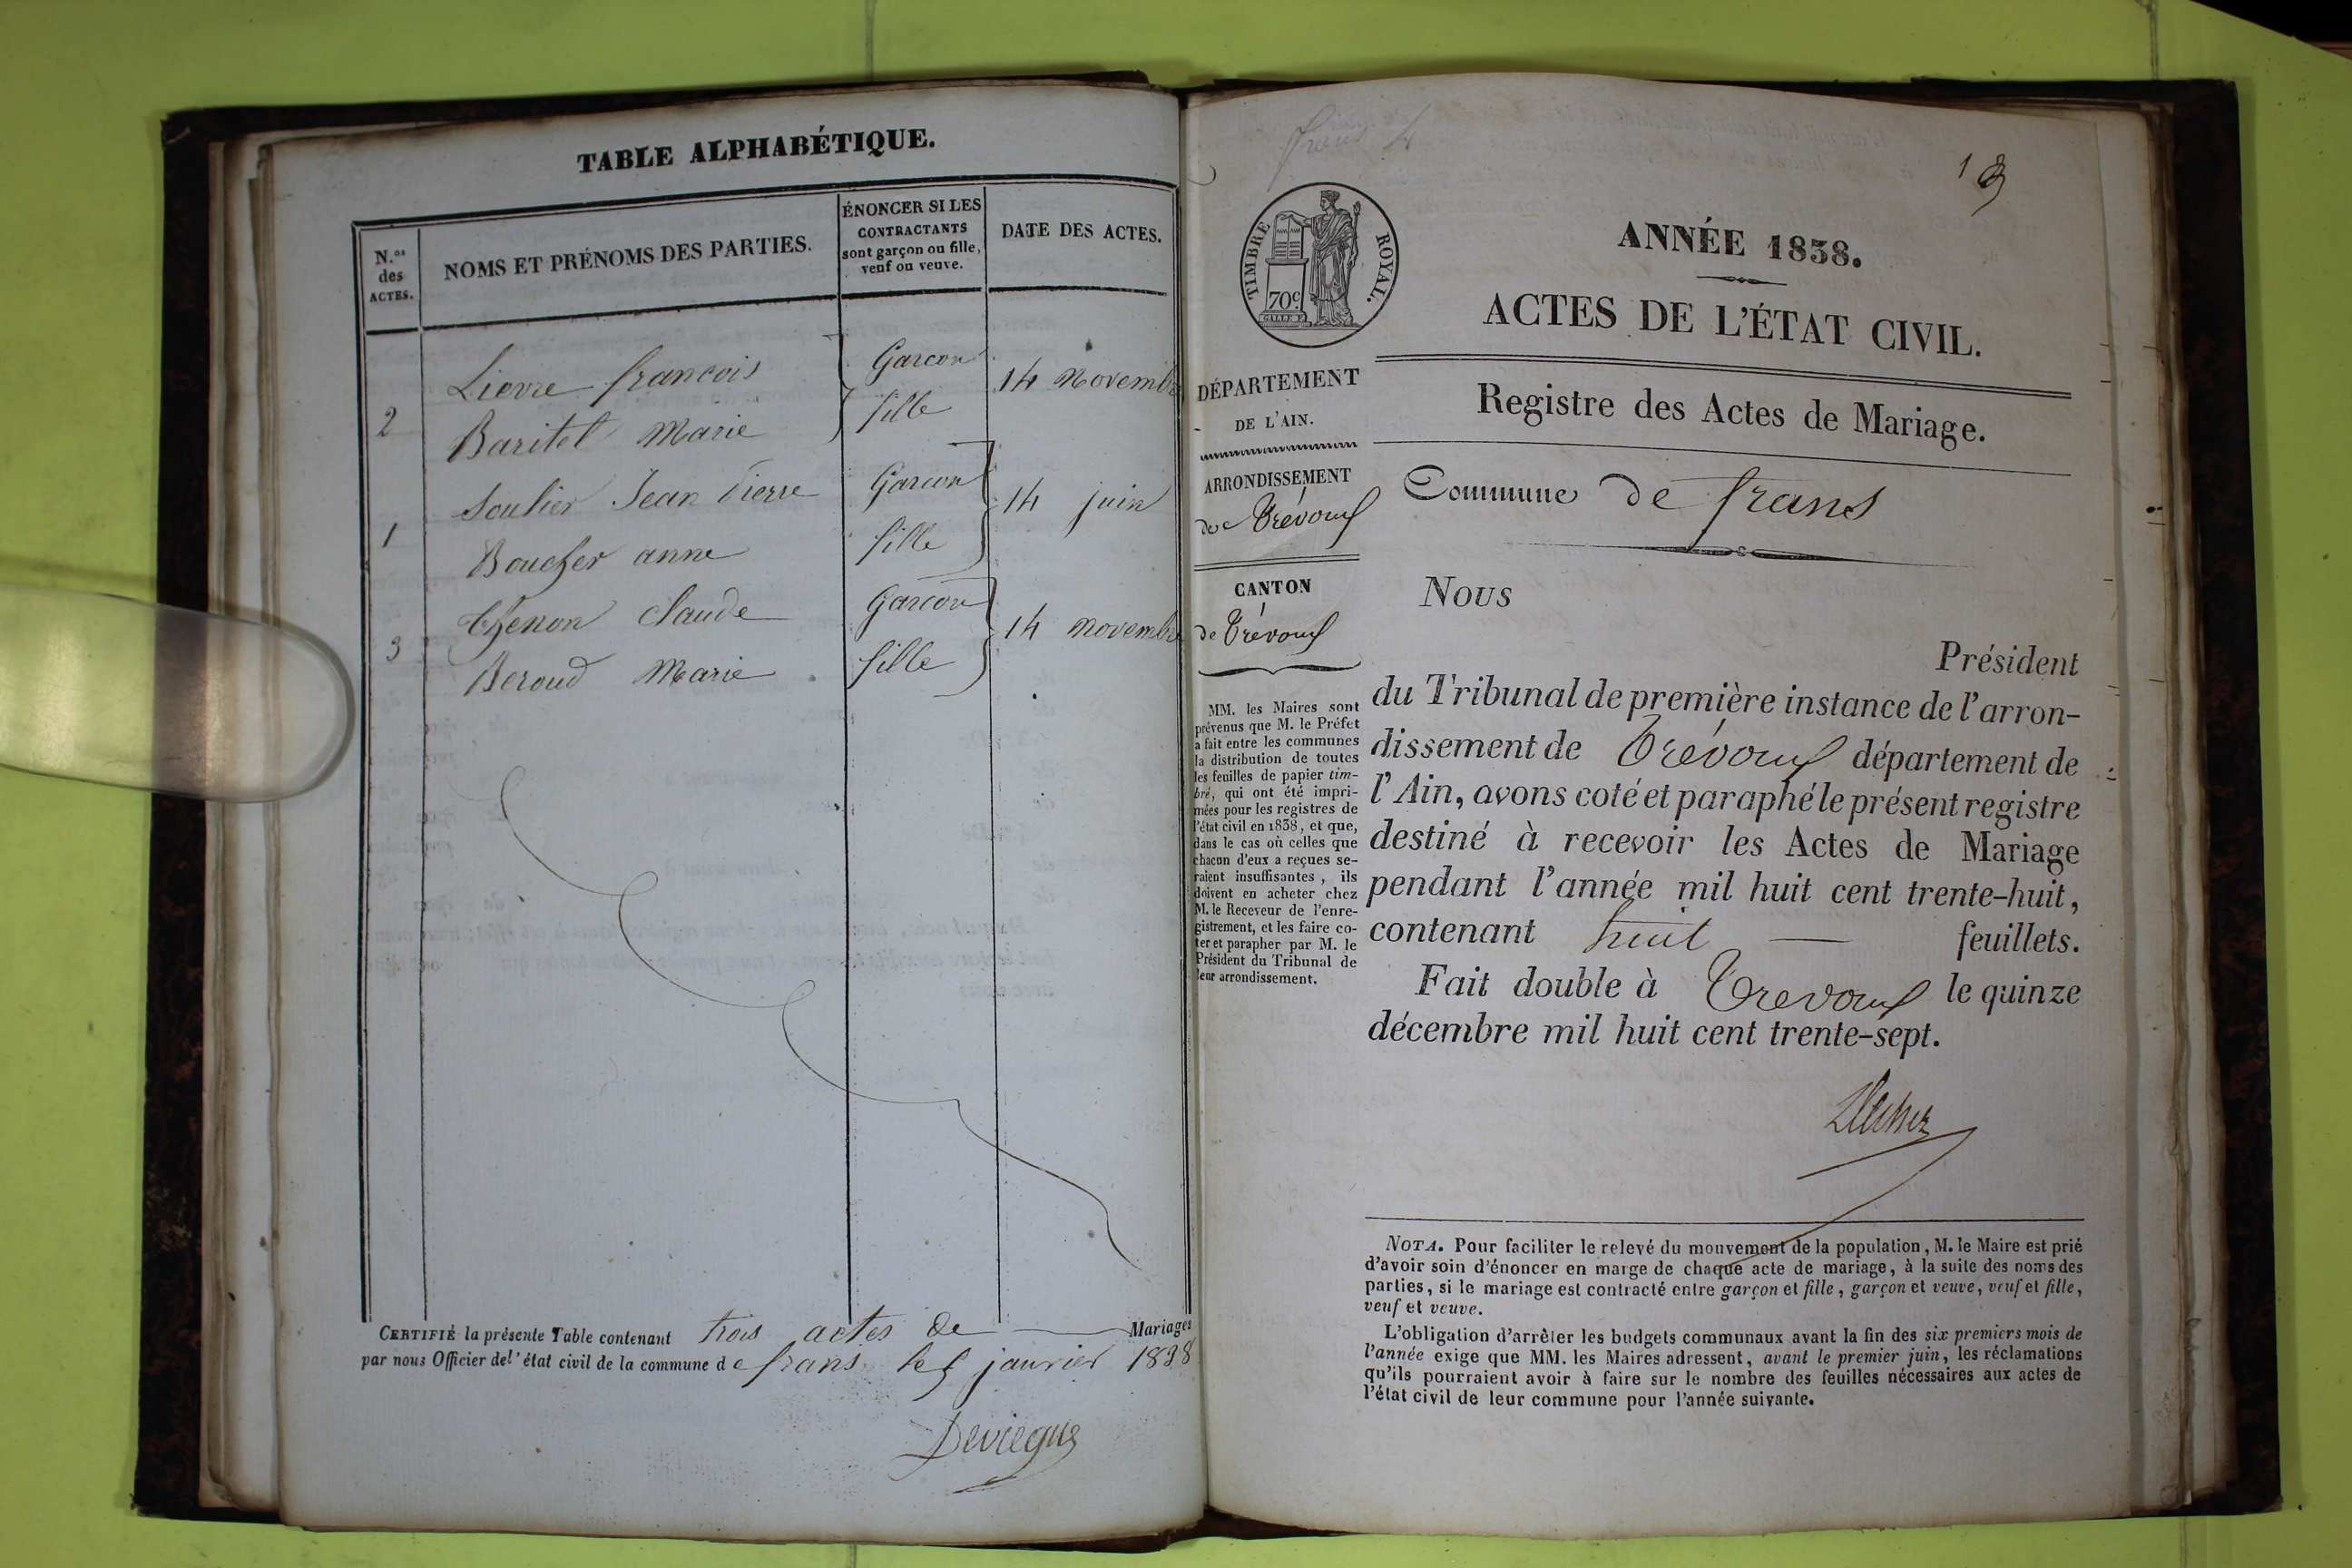 TABLE ALPHABÉTIQUE.
N.os des ACTES.
NOMS ET PRÉNOMS DES PARTIES.
ÉNONCER SI LES
CONTRACTANTS
sont garçon ou fille,
veuf ou veuve.
DATE DES ACTES.
Lievre francois Garcon
2 14 Novembre
Baritel Marie fille
Soulier Jean Pierre Garcon
1 14 juin
Boucher anne fille
Thenon claude Garcon
3 14 novembre
Beroud Marie fille
CERTIFIÉ la présente Table contenant trois actes de Mariages
par nous Officier del'état civil de la commune de frans le 5 janvier 1838
Deviegue
1
ANNÉE 1838.
ACTES DE L'ÉTAT CIVIL.
Registre des Actes de Mariage.
Commune de frans
TIMBRE ROYAL.
70c
GALLE F.
DÉPARTEMENT
DE L'AIN.
ARRONDISSEMENT
de Trévoux
CANTON
de Trévoux
MM. les Maires sont
prévenus que M. le Préfet
a fait entre les communes
la distribution de toutes
les feuilles de papier tim-
bré, qui ont été impri-
mées pour les registres de
l'état civil en 1838, et que,
dans le cas où celles que
chacun d'eux a reçues se-
raient insuffisantes, ils
doivent en acheter chez
M. le Receveur de l'enre-
gistrement, et les faire co-
ter et parapher par M. le
Président du Tribunal de
leur arrondissement.
Nous
Président
du Tribunal de première instance de l'arron-
dissement de Trévoux département de
l'Ain, avons coté et paraphé le présent registre
destiné à recevoir les Actes de Mariage
pendant l'année mil huit cent trente-huit,
contenant huit — feuillets.
Fait double à Trevoux le quinze
décembre mil huit cent trente-sept.
NOTA. Pour faciliter le relevé du mouvement de la population, M. le Maire est prié
d'avoir soin d'énoncer en marge de chaque acte de mariage, à la suite des noms des
parties, si le mariage est contracté entre garçon et fille, garçon et veuve, veuf et fille,
veuf et veuve.
L'obligation d'arrêter les budgets communaux avant la fin des six premiers mois de
l'année exige que MM. les Maires adressent, avant le premier juin, les réclamations
qu'ils pourraient avoir à faire sur le nombre des feuilles nécessaires aux actes de
l'état civil de leur commune pour l'année suivante.